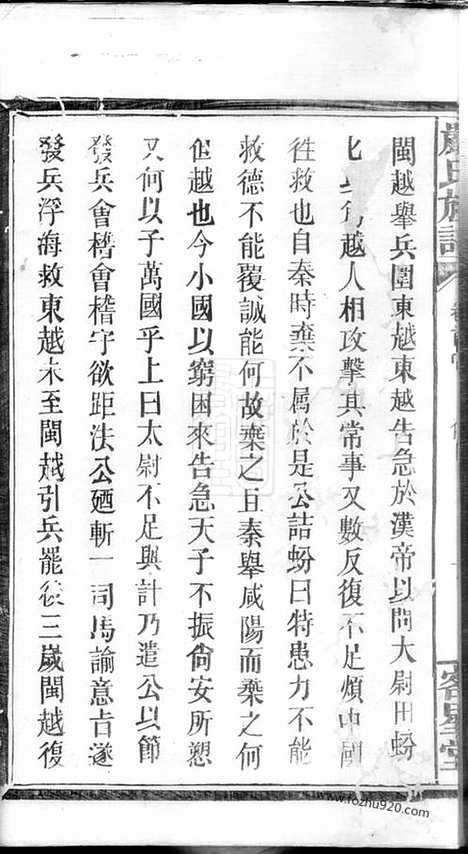 嚴氏族譜
客星堂
閩越舉兵圍東越東越告急於漢帝以問大尉田蚡
以爲越人相攻擊其常事又數反復不足煩中國
徃救也自秦時棄不属於是公詰蚡曰特患力不能
救德不能覆誠能何故棄之且秦舉咸陽而棄之何
但越也今小國以窮困來告急天子不振尙安所愬
又何以子萬國乎上曰太尉不足與計乃遣公以節
發兵會稽會稽守欲距法公廼斬一司馬諭意㫖遂
發兵浮海救東越未至閩越引兵罷後三嵗閩越復
www.fozhu920.com